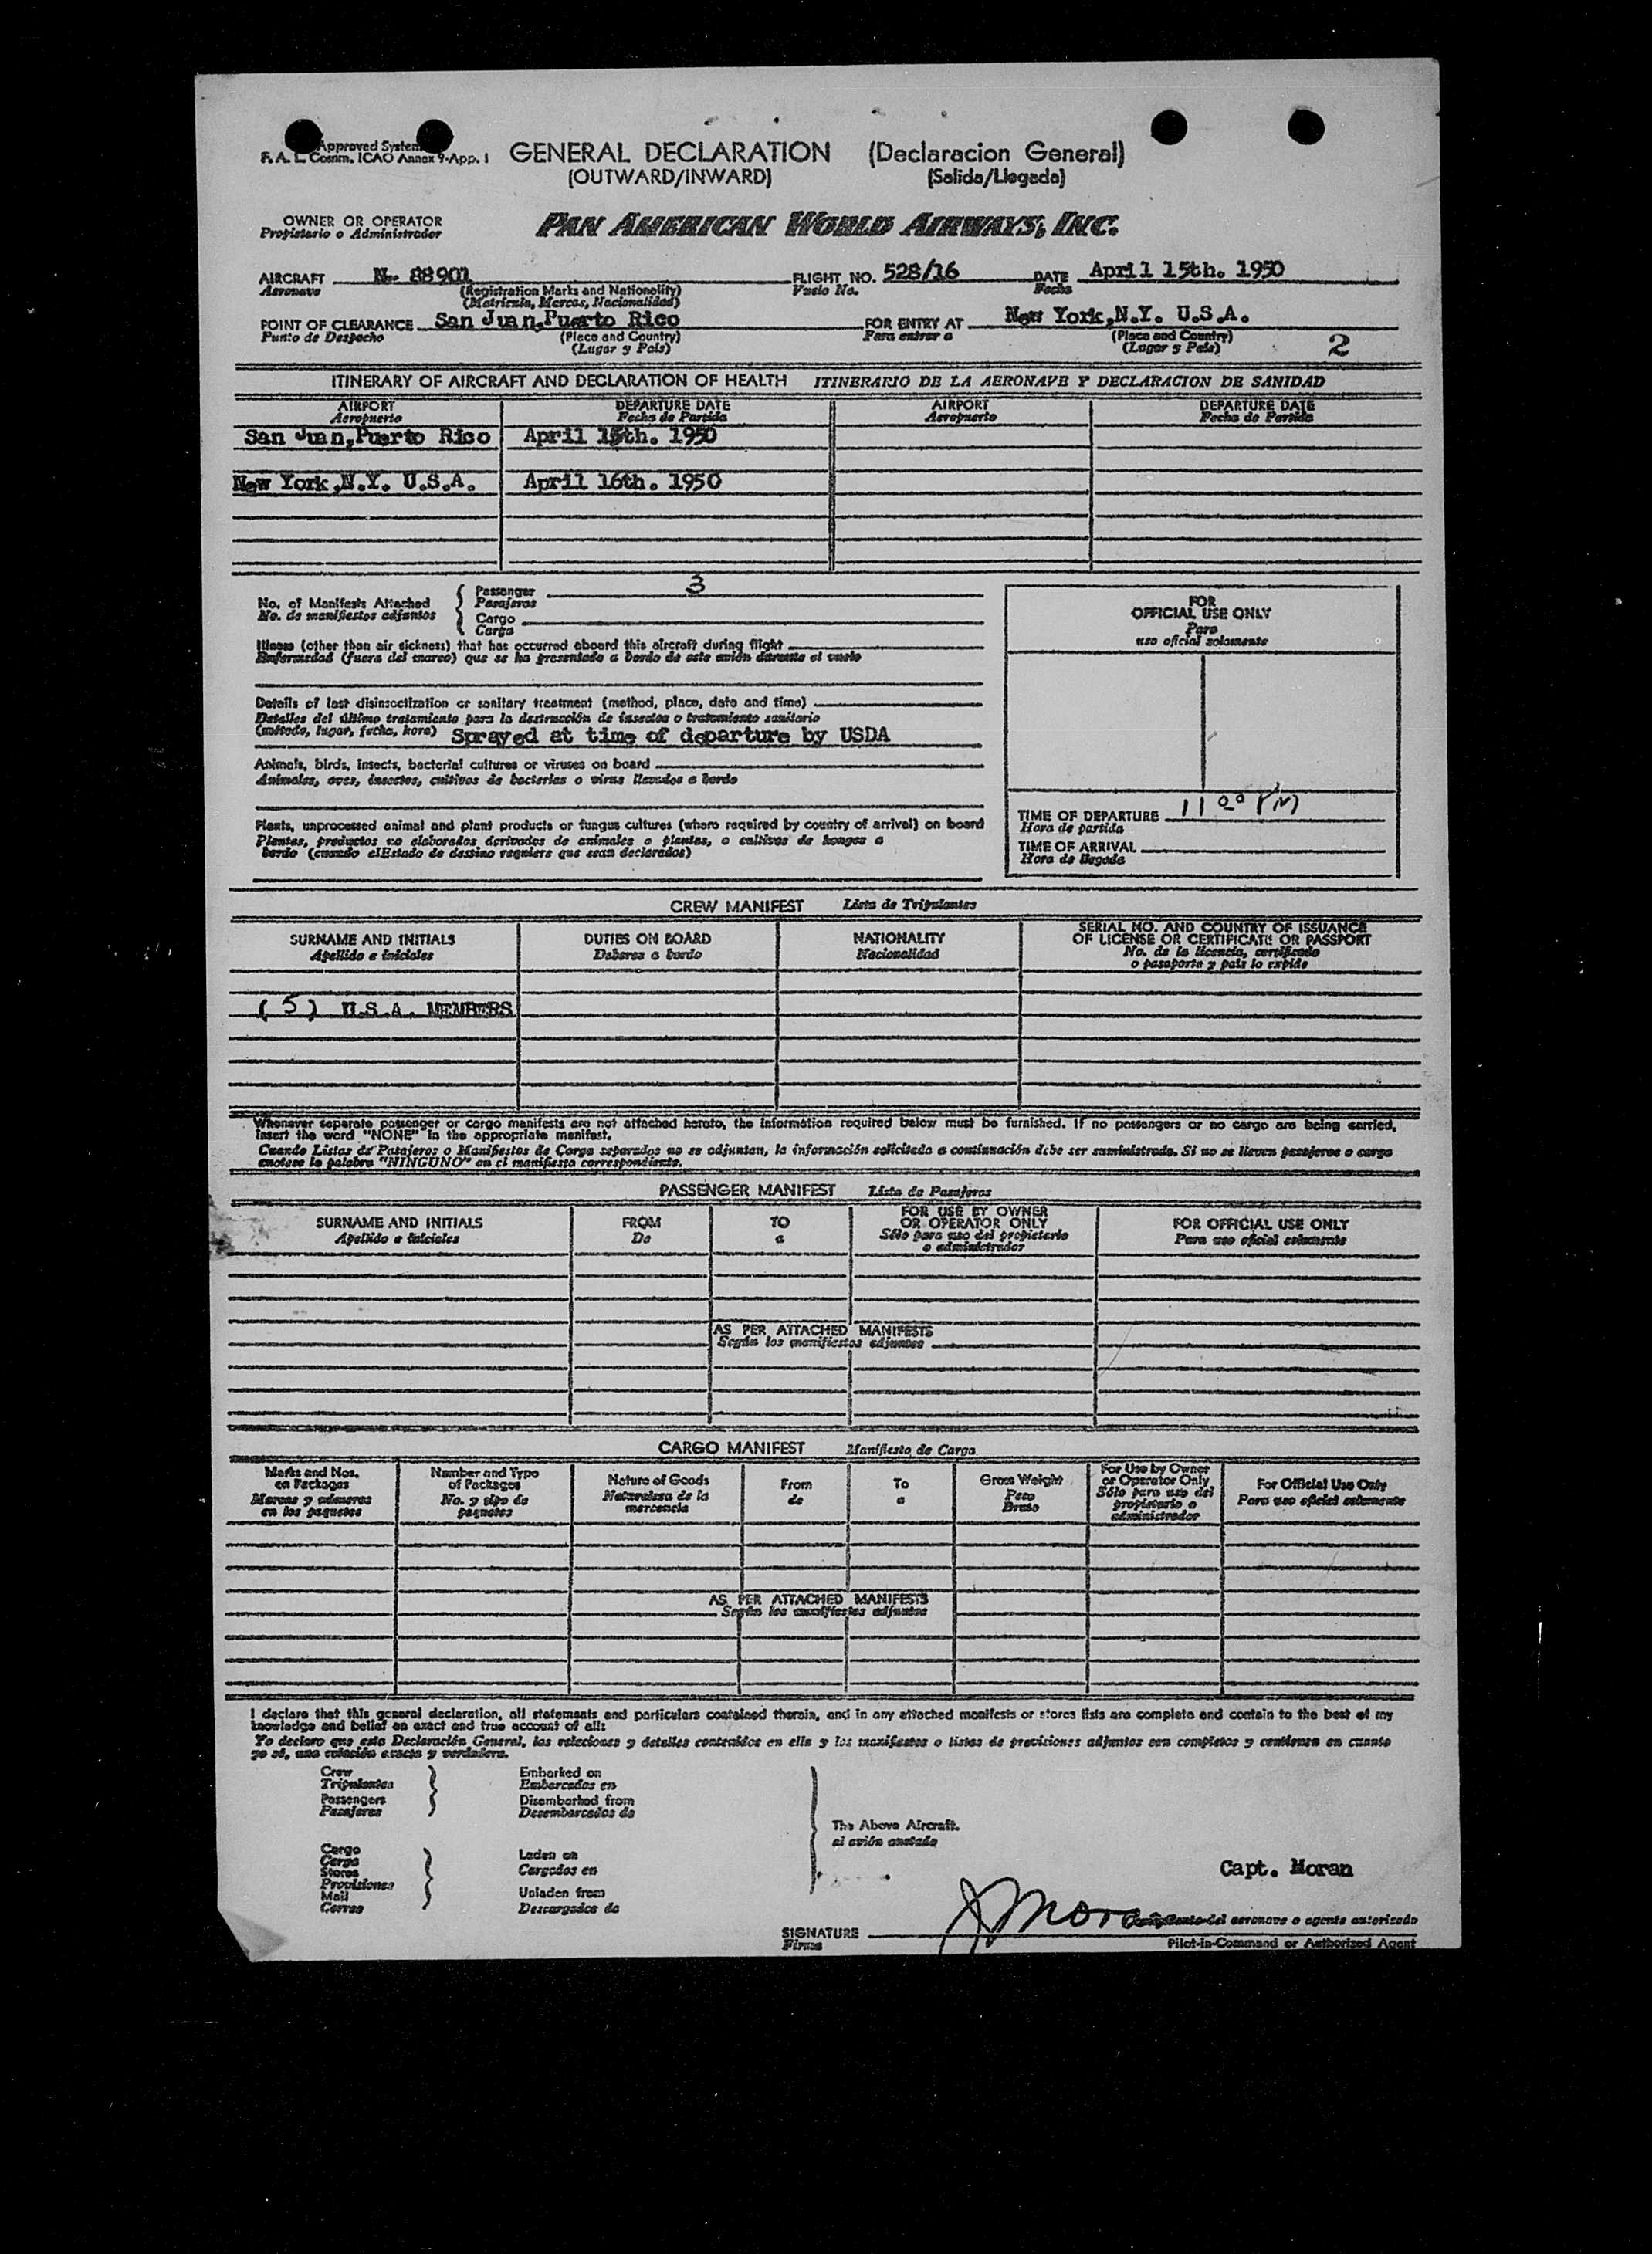 Approved System
F. A. L. Comm. ICAO Annex 9-App. 1
GENERAL DECLARATION (Declaracion General)
(OUTWARD/INWARD) (Salida/Llegada)
OWNER OR OPERATOR
Propietario o Administrador
PAN AMERICAN WORLD AIRWAYS, INC.
AIRCRAFT N- 88901 FLIGHT NO. 528/16 DATE April 15th. 1950
Aeronave (Registration Marks and Nationality) Vuelo No. Fecha
(Matricula, Marcas, Nacionalidad)
POINT OF CLEARANCE San Juan,Puerto Rico FOR ENTRY AT New York,N.Y. U.S.A.
Punto de Despacho (Place and Country) Para entrar a (Place and Country)
(Lugar y Pais) (Lugar y Pais) 2
ITINERARY OF AIRCRAFT AND DECLARATION OF HEALTH ITINERARIO DE LA AERONAVE Y DECLARACION DE SANIDAD
AIRPORT DEPARTURE DATE AIRPORT DEPARTURE DATE
Aeropuerto Fecha de Partida Aeropuerto Fecha de Partida
San Juan,Puerto Rico April 15th. 1950
New York,N.Y. U.S.A. April 16th. 1950
No. of Manifests Attached
No. de manifiestos adjuntos
Passenger 3
Pasajeros
Cargo
Carga
FOR
OFFICIAL USE ONLY
Para
uso oficial solamente
Illness (other than air sickness) that has occurred aboard this aircraft during flight
Enfermedad (fuera del mareo) que se ha presentado a bordo de este avión durante el vuelo
Details of last disinsectization or sanitary treatment (method, place, date and time)
Detalles del último tratamiento para la destrucción de insectos o tratamiento sanitario
(método, lugar, fecha, hora) Sprayed at time of departure by USDA
Animals, birds, insects, bacterial cultures or viruses on board
Animales, aves, insectos, cultivos de bacterias o virus llevados a bordo
TIME OF DEPARTURE 11 00 PM
Hora de partida
TIME OF ARRIVAL
Hora de llegada
Plants, unprocessed animal and plant products or fungus cultures (where required by country of arrival) on board
Plantas, productos no elaborados derivados de animales o plantas, o cultivos de hongos a
bordo (cuando elEstado de destino requiere que sean declarados)
CREW MANIFEST Lista de Tripulantes
SURNAME AND INITIALS DUTIES ON BOARD NATIONALITY SERIAL NO. AND COUNTRY OF ISSUANCE
OF LICENSE OR CERTIFICATE OR PASSPORT
Apellido e iniciales Deberes a bordo Nacionalidad No. de la licencia, certificado
o pasaporte y pais lo expide
( 5 ) U.S.A. MEMBERS
Whenever separate passenger or cargo manifests are not attached hereto, the information required below must be furnished. If no passengers or no cargo are being carried,
insert the word "NONE" in the appropriate manifest.
Cuando Listas de Pasajeros o Manifiestos de Carga separados no se adjuntan, la información solicitada a continuación debe ser suministrada. Si no se llevan pasajeros o carga
anotese la palabra "NINGUNO" en el manifiesto correspondiente.
PASSENGER MANIFEST Lista de Pasajeros
SURNAME AND INITIALS FROM TO FOR USE BY OWNER
OR OPERATOR ONLY FOR OFFICIAL USE ONLY
Apellido e iniciales De a Sólo para uso del propietario
o administrador Para uso oficial solamente
AS PER ATTACHED MANIFESTS
Según los manifiestos adjuntos
CARGO MANIFEST Manifiesto de Carga
Marks and Nos.
on Packages
Marcas y números
en los paquetes
Number and Type
of Packages
No. y tipo de
paquetes
Nature of Goods
Naturaleza de la
mercancia
From
de
To
a
Gross Weight
Peso
Bruto
For Use by Owner
or Operator Only
Sólo para uso del
propietario o
administrador
For Official Use Only
Para uso oficial solamente
AS PER ATTACHED MANIFESTS
Según los manifiestos adjuntos
I declare that this general declaration, all statements and particulars contained therein, and in any attached manifests or stores lists are complete and contain to the best of my
knowledge and belief an exact and true account of all:
Yo declaro que esta Declaración General, las relaciones y detalles contenidos en ella y los manifiestos o listas de provisiones adjuntos son completos y contienen en cuanto
yo sé, una relación exacta y verdadera.
Crew
Tripulantes
Passengers
Pasajeros
Embarked on
Embarcados en
Disembarked from
Desembarcados de
The Above Aircraft.
el avión anotado
Cargo
Carga
Stores
Provisiones
Mail
Correo
Laden on
Cargados en
Unladen from
Descargados de
Capt. Moran
SIGNATURE
Firma
del aeronave o agente autorizado
Pilot-in-Command or Authorized Agent